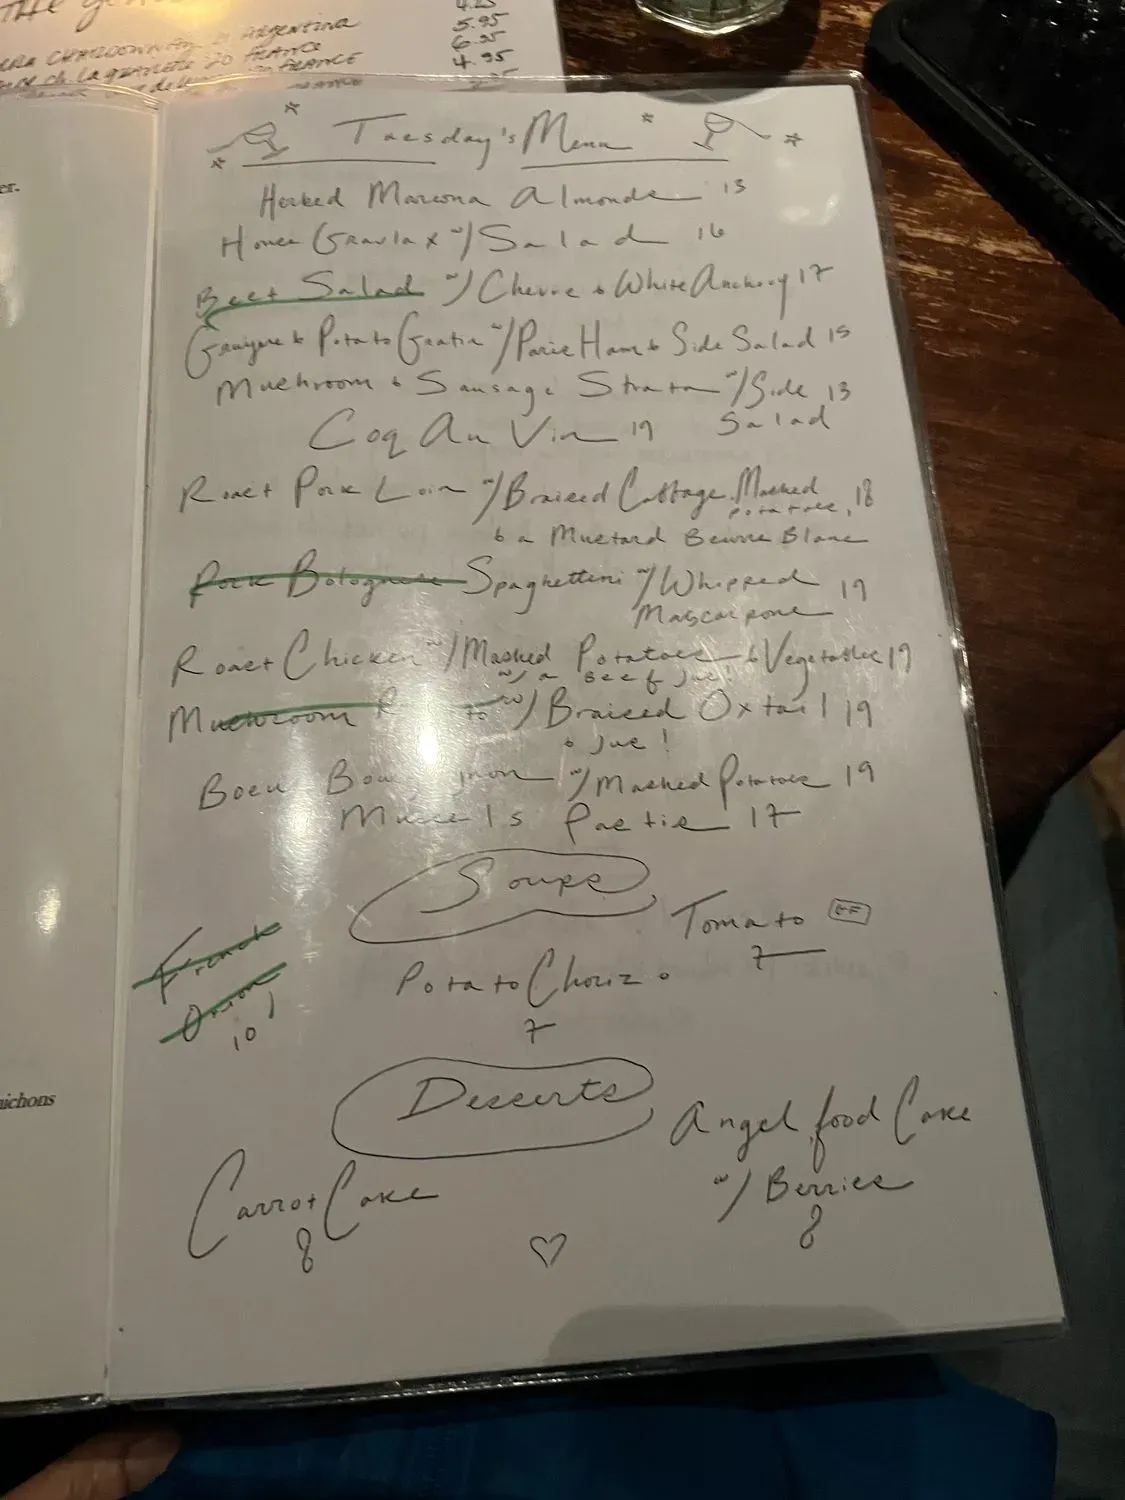 4.25
CHARDONNAY ARGENTINA 5.95
FRANCE 6.95
FRANCE 4.95
er.
Tuesday's Menu
Herbed Marcona Almonds 13
House Gravlax w/ Salad 16
Beet Salad w/ Chevre & White Anchovy 17
Gruyere & Potato Gratin w/ Paris Ham & Side Salad 15
Mushroom & Sausage Strata w/ Side 13
Salad
Coq Au Vin 19
Roast Pork Loin w/ Braised Cabbage, Mashed
potatoes, 18
& a Mustard Beurre Blanc
Pork Bolognese Spaghettini w/ Whipped 19
Mascarpone
Roast Chicken w/ Mashed Potatoes & Vegetables 19
w/ a Beef Jus!
Mushroom w/ Braised Oxtail 19
& Jus!
Boeuf Bourguignon w/ Mashed Potatoes 19
Mussels Pastis 17
Soups
Tomato GF
7
French
Onion!
10
Potato Chorizo
7
Desserts
ichons
Angel food Cake
w/ Berries
8
Carrot Cake
8